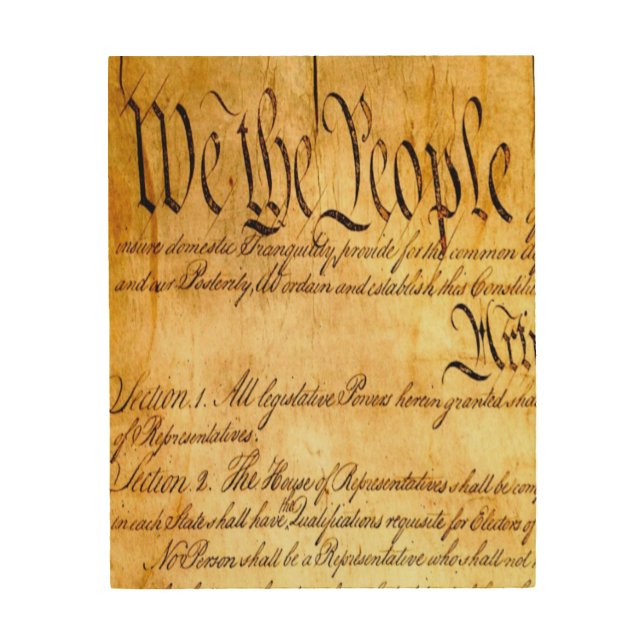 We the People
insure domestic Tranquility, provide for the common
and our Posterity, do ordain and establish this Constitu
Arti
Section. 1. All legislative Powers herein granted sha
of Representatives.
Section. 2. The House of Representatives shall be com
the
in each State shall have Qualifications requisite for Electors of
No Person shall be a Representative who shall not